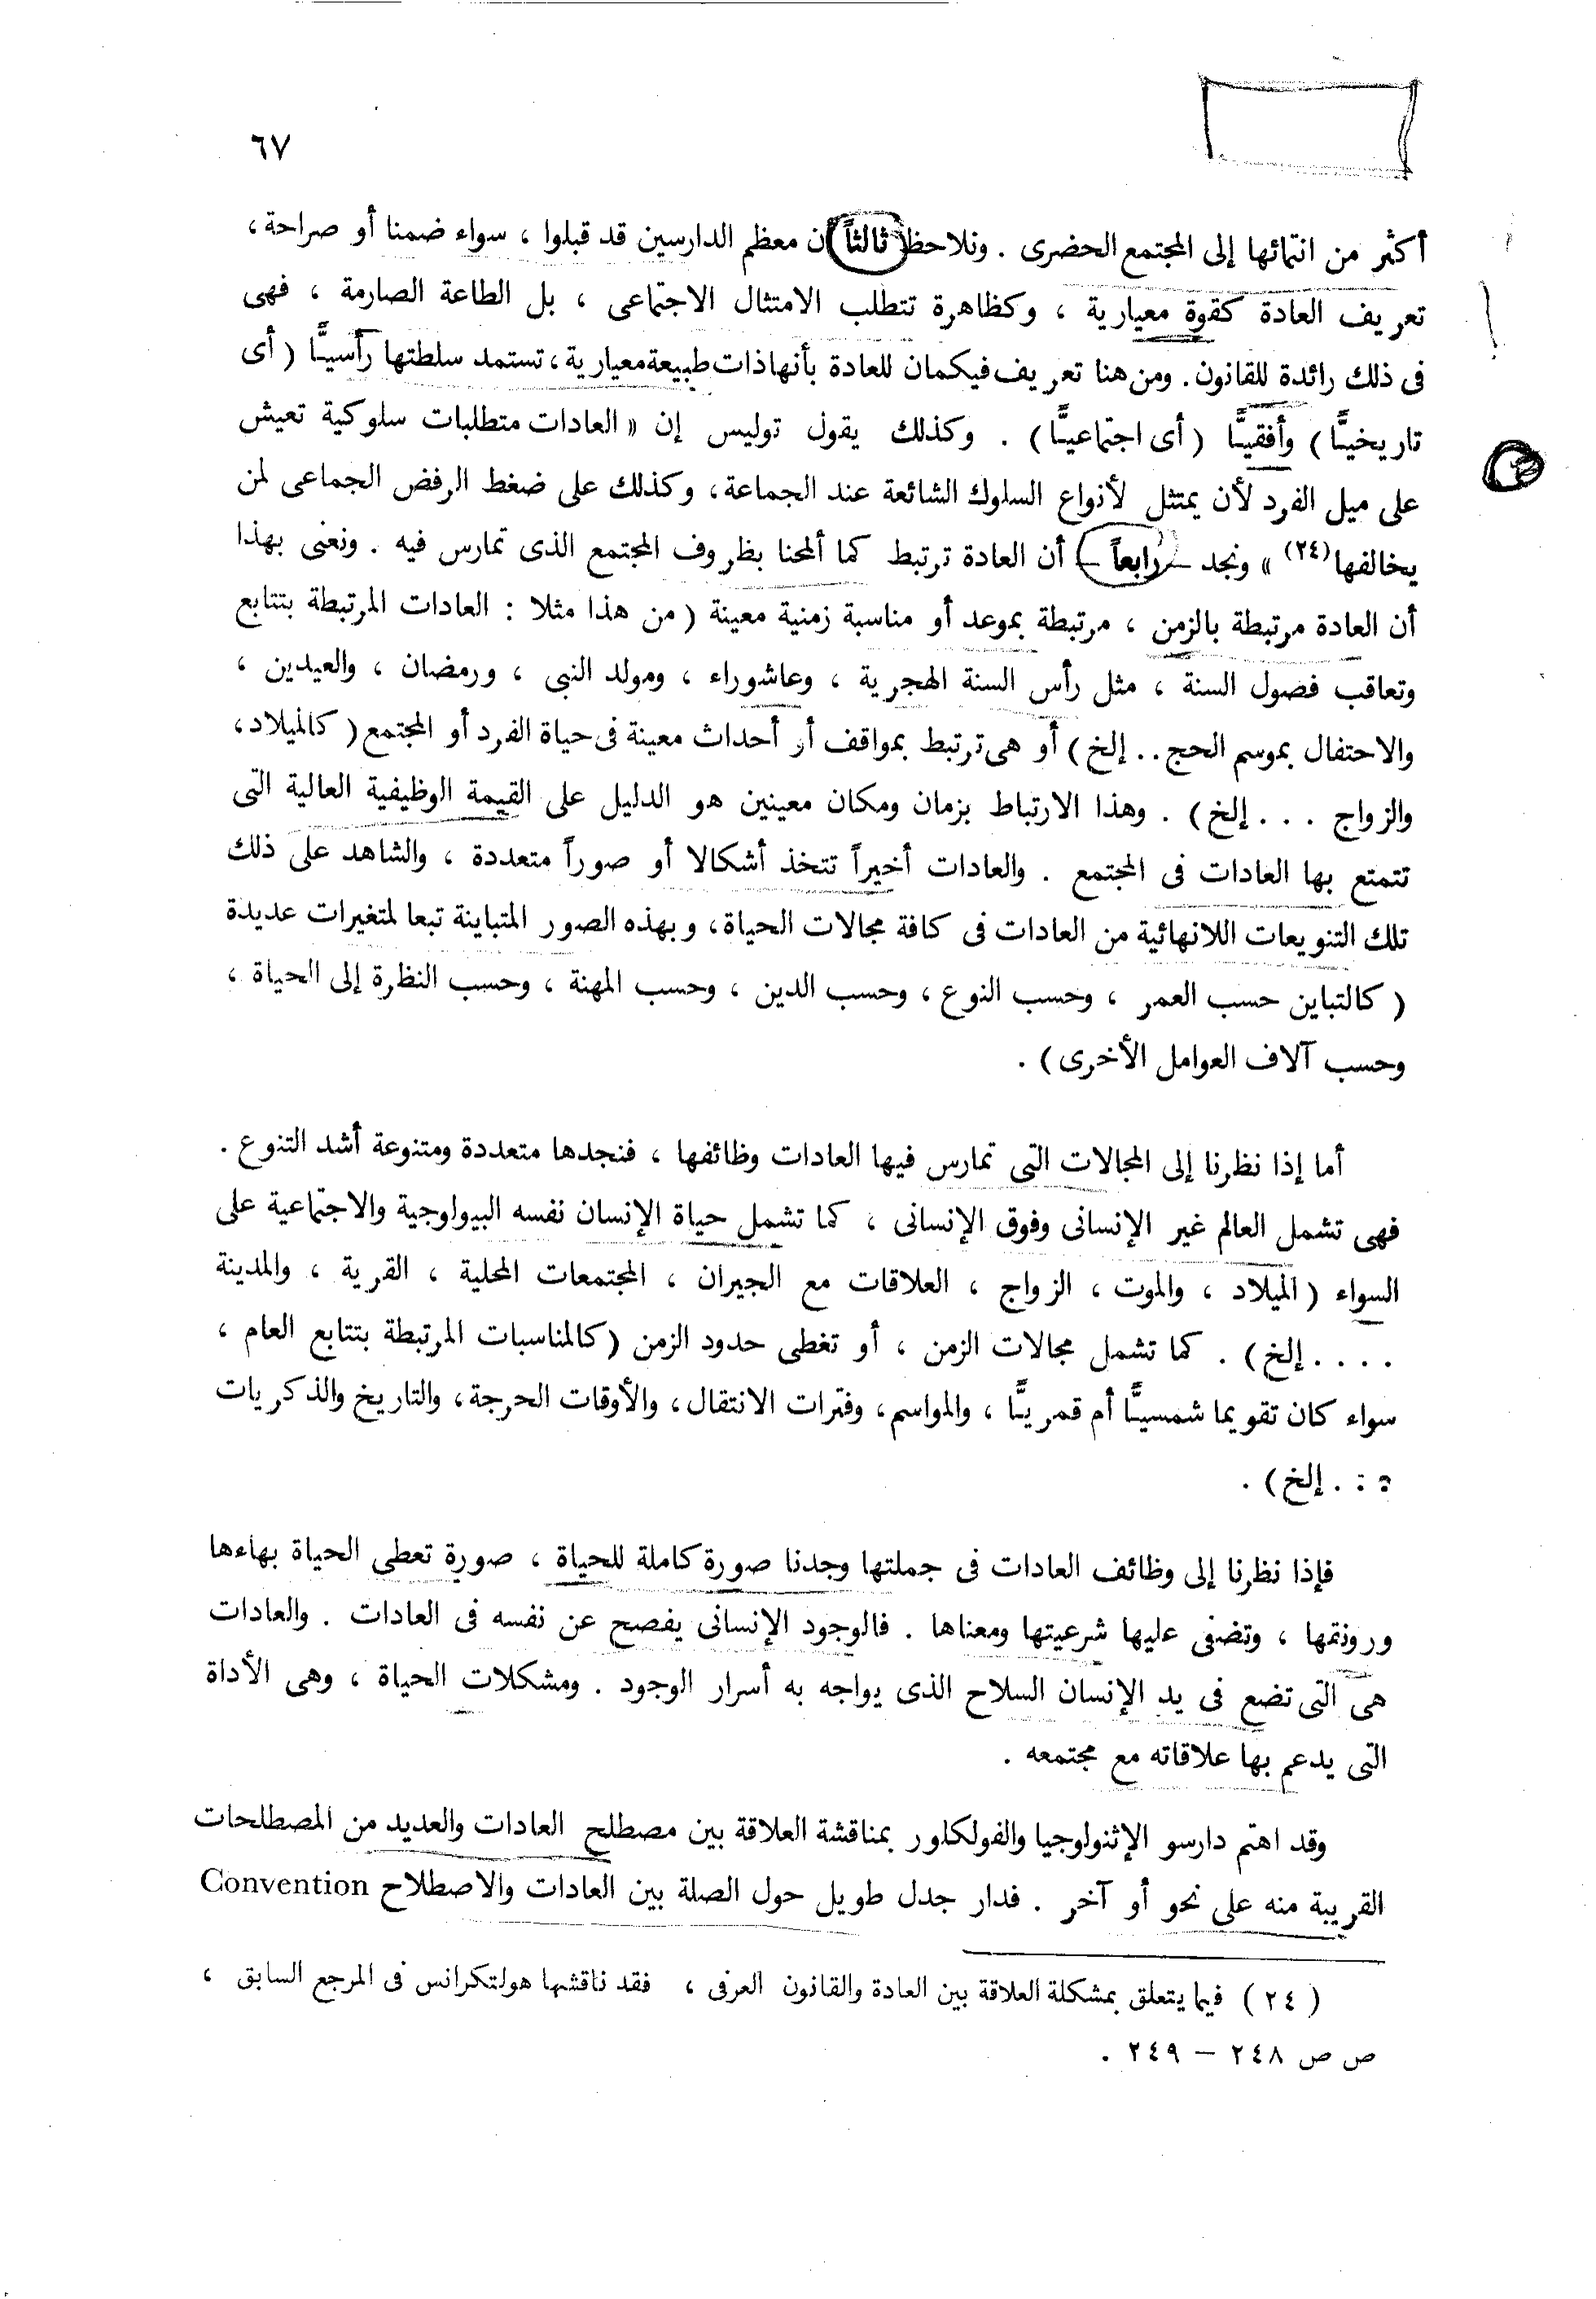 ٦٧
أكثر من انتمائها إلى المجتمع الحضرى . ونلاحظ ثالثاً أن معظم الدارسين قد قبلوا ، سواء ضمنا أو صراحة ،
تعريف العادة كقوة معيارية ، وكظاهرة تتطلب الامتثال الاجتماعى ، بل الطاعة الصارمة ، فهى
فى ذلك رائدة للقانون . ومن هنا تعريف فيكمان للعادة بأنها ذات طبيعة معيارية ، تستمد سلطتها رأسيًّا ( أى
تاريخيًّا ) وأفقيًّا ( أى اجتماعيًّا ) . وكذلك يقول توليس إن « العادات متطلبات سلوكية تعيش
على ميل الفرد لأن يمتثل لأنواع السلوك الشائعة عند الجماعة ، وكذلك على ضغط الرفض الجماعى لمن
يخالفها (٢٤) » ونجد – رابعاً – أن العادة ترتبط كما ألمحنا بظروف المجتمع الذى تمارس فيه . ونعنى بهذا
أن العادة مرتبطة بالزمن ، مرتبطة بموعد أو مناسبة زمنية معينة ( من هذا مثلا : العادات المرتبطة بتتابع
وتعاقب فصول السنة ، مثل رأس السنة الهجرية ، وعاشوراء ، ومولد النبى ، ورمضان ، والعيدين ،
والاحتفال بموسم الحج . . إلخ ) أو هى ترتبط بمواقف أو أحداث معينة فى حياة الفرد أو المجتمع ( كالميلاد ،
والزواج . . . إلخ ) . وهذا الارتباط بزمان ومكان معينين هو الدليل على القيمة الوظيفية العالية التى
تتمتع بها العادات فى المجتمع . والعادات أخيراً تتخذ أشكالا أو صوراً متعددة ، والشاهد على ذلك
تلك التنويعات اللانهائية من العادات فى كافة مجالات الحياة ، وبهذه الصور المتباينة تبعا لمتغيرات عديدة
( كالتباين حسب العمر ، وحسب النوع ، وحسب الدين ، وحسب المهنة ، وحسب النظرة إلى الحياة ،
وحسب آلاف العوامل الأخرى ) .
أما إذا نظرنا إلى المجالات التى تمارس فيها العادات وظائفها ، فنجدها متعددة ومتنوعة أشد التنوع .
فهى تشمل العالم غير الإنسانى وفوق الإنسانى ، كما تشمل حياة الإنسان نفسه البيولوجية والاجتماعية على
السواء ( الميلاد ، والموت ، الزواج ، العلاقات مع الجيران ، المجتمعات المحلية ، القرية ، والمدينة
. . . . إلخ ) . كما تشمل مجالات الزمن ، أو تغطى حدود الزمن ( كالمناسبات المرتبطة بتتابع العام ،
سواء كان تقويما شمسيًّا أم قمريًّا ، والمواسم ، وفترات الانتقال ، والأوقات الحرجة ، والتاريخ والذكريات
. . . إلخ ) .
فإذا نظرنا إلى وظائف العادات فى جملتها وجدنا صورة كاملة للحياة ، صورة تعطى الحياة بهاءها
ورونقها ، وتضفى عليها شرعيتها ومعناها . فالوجود الإنسانى يفصح عن نفسه فى العادات . والعادات
هى التى تضع فى يد الإنسان السلاح الذى يواجه به أسرار الوجود . ومشكلات الحياة ، وهى الأداة
التى يدعم بها علاقاته مع مجتمعه .
وقد اهتم دارسو الإثنولوجيا والفولكلور بمناقشة العلاقة بين مصطلح العادات والعديد من المصطلحات
القريبة منه على نحو أو آخر . فدار جدل طويل حول الصلة بين العادات والاصطلاح Convention
( ٢٤ ) فيما يتعلق بمشكلة العلاقة بين العادة والقانون العرفى ، فقد ناقشها هولتكرانس فى المرجع السابق ،
ص ص ٢٤٨ – ٢٤٩ .